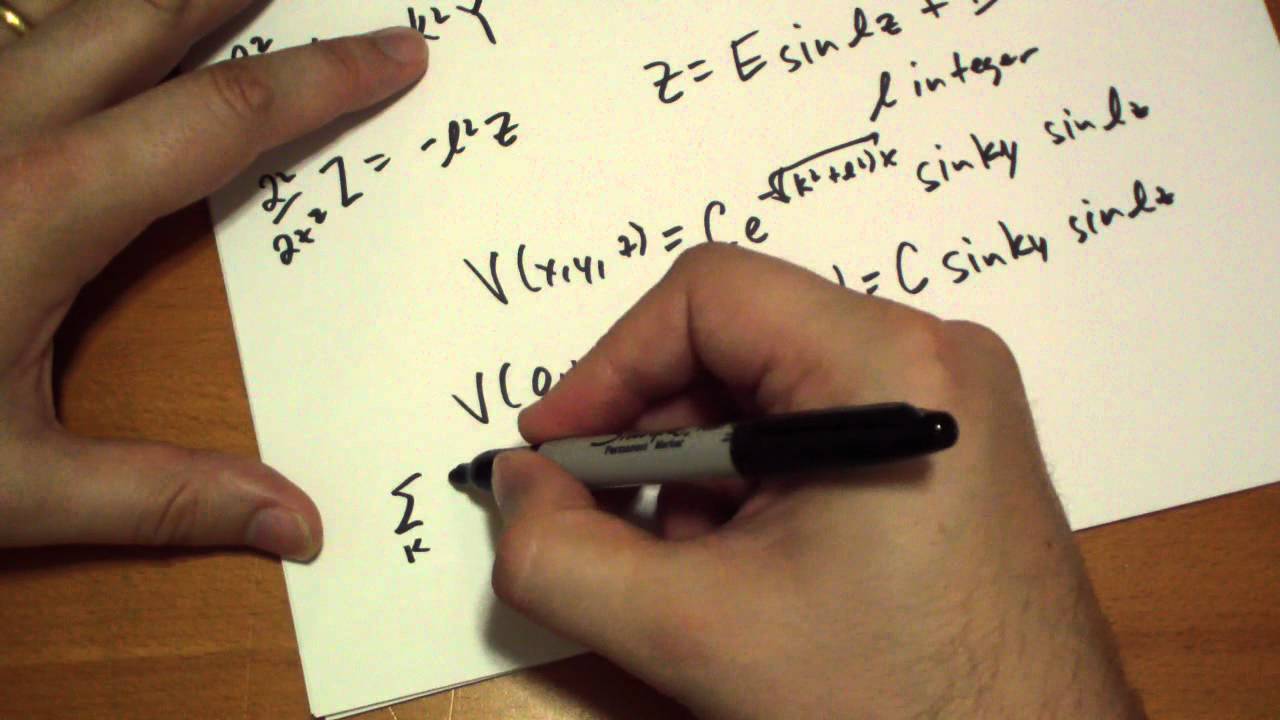 k² Y
Z = E sin lz +
l integer
∂²/∂x² Z = -l² Z
V(x, y, z) = C e^-√(k²+l²)x sin ky sin lz
= C sin ky sin lz
V(0,
Σ
k
Permanent Marker